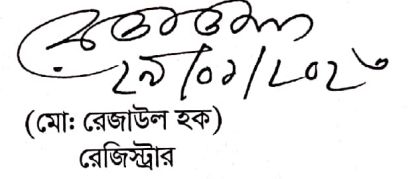 ২৯/০১/২০২৬
(মোঃ রেজাউল হক)
রেজিস্ট্রার